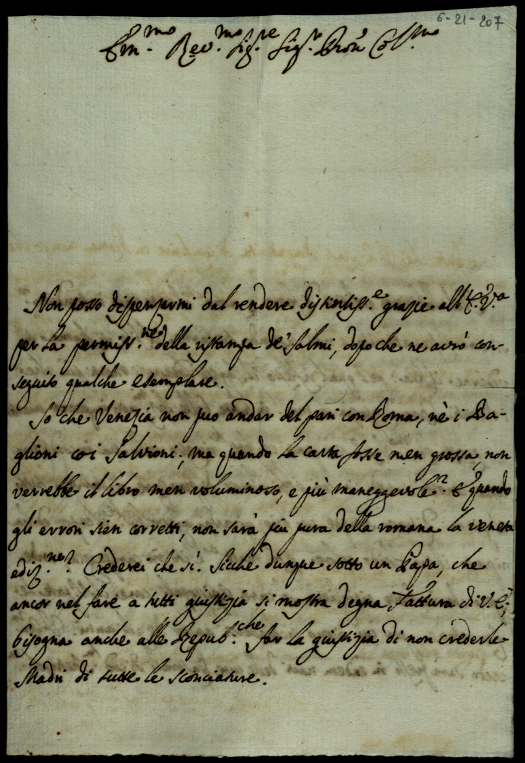 6-21-207
Em.mo Rev.mo Sig.re Sig.r Pron' Col.mo
Non posso dispensarmi dal rendere distintiss.e grazie all'E.V.a
per la permiss.ne della ristampa de' Salmi, dopo che ne avrò con-
seguito qualche esemplare.
So che Venezia non può andar del pari con Roma, nè i Ba-
glioni co i Salvioni; ma quando la carta fosse men grossa, non
verrebbe il libro men voluminoso, e più maneggevole? E quando
gli errori sien corretti, non sarà più pura della romana la veneta
ediz.ne? Crederei che sì. Sicché dunque sotto un Papa, che
ancor nel fare a tutti giustizia si mostra degna Fattura di V.E.
bisogna anche alle Repub.che far la giustizia di non crederle
Madri di tutte le sconciature.